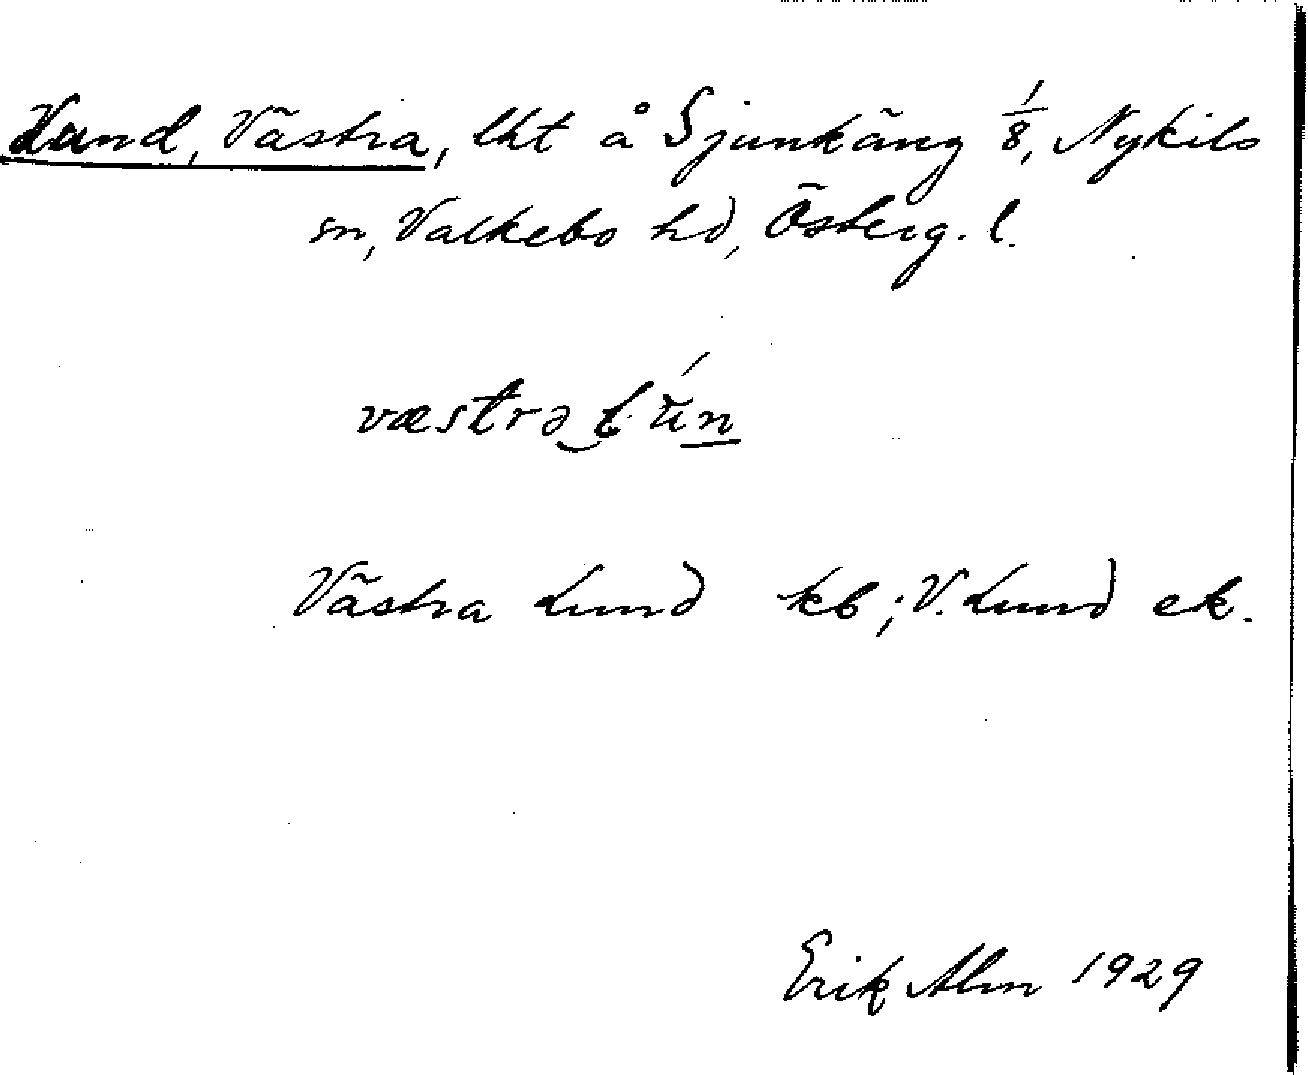 Lund, Västra, lht å Sjunkäng 1/8, Nykils
sn, Valkebo hd, Österg. l.
væstrə lún
Västra Lund kb; V. Lund ek.
Erik Alm 1929